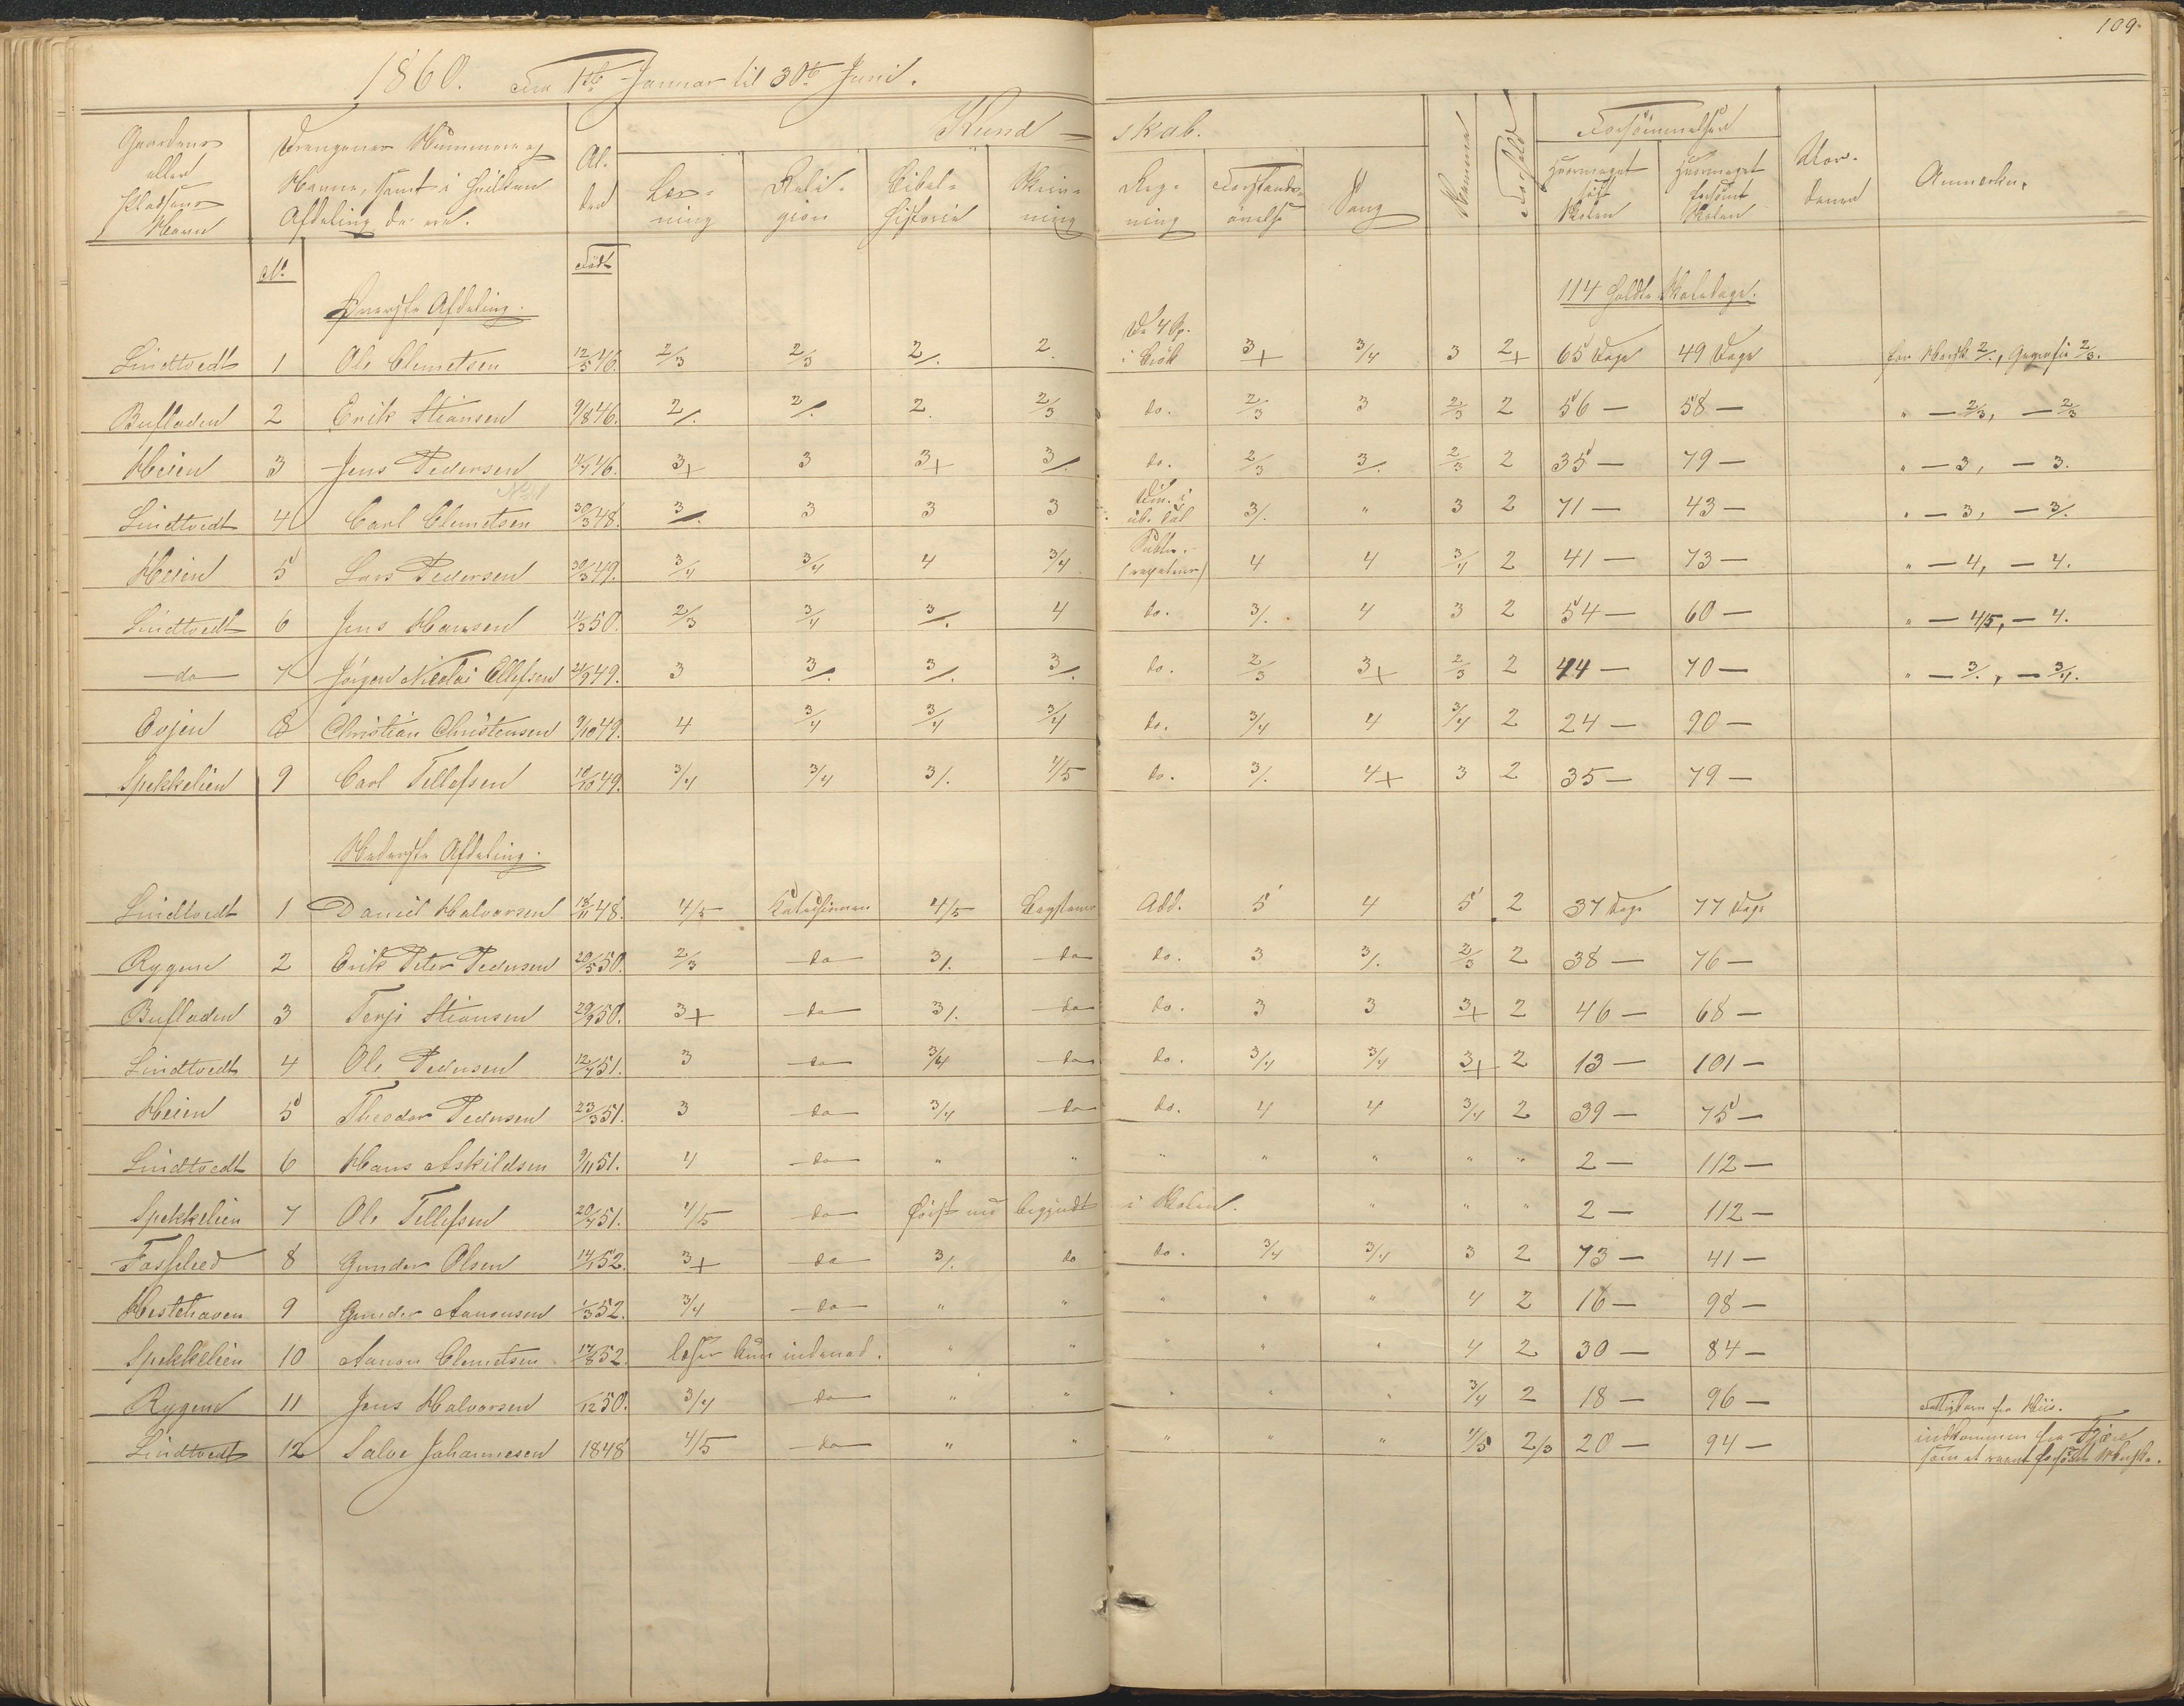 109.
1860. Fra 1ste Januar til 30te Juni.
Gaardens eller Pladsens Navn | Drengenes Nummer og Navne, samt i hvilken Afdeling de ere. | Alder | Kundskab. | Forsømmelser | Anmærkn.
Læsning | Religion | Bibelhistorie | Skrivning | Regning | Forstandsøvelse | Sang | Nemme | Forhold | hvormeget søgt Skolen | hvormeget forsømt Skolen
No. | Født
Øverste Afdeling. | 114 holdte Skoledage.
Lindtvedt 1 Ole Clemetsen 12/5 46. 2/3 2/3 2/. 2. De 4 Sp. i Brök 3+ 3/4 3 2+ 65 Dage 49 Dage
Bufladen 2 Erik Stiansen 9/8 46. 2/. 2/. 2. 2/3 do. 2/3 3 2/3 2 56 — 58 — " — 2/3, — 2/3
Heien 3 Jens Pedersen 46. 3+ 3 3+ 3/. do. 2/3 3/. 2/3 2 35 — 79 — " — 3, — 3.
Lindtvedt 4 Carl Clemetsen 30/3 48. 3/. 3 3 3 3/. " 3 2 71 — 43 — " — 3, — 3/.
Heien 5 Lars Pedersen 30/3 49. 3/4 3/4 4 3/4 4 4 3/4 2 41 — 73 — " — 4, — 4.
Lindtvedt 6 Jens Hansen 11/3 50. 2/3 3/4 3/. 4 do. 3/. 4 3 2 54 — 60 — " — 4/5, — 4.
do 7 Jørgen Nicolai Ellefsen 21/9 49. 3 3/. 3/. 3/. do. 2/3 3+ 2/3 2 44 — 70 — " — 3/., — 3/4.
Evjen 8 Christian Christensen 9/10 49. 4 3/4 3/4 3/4 do. 3/4 4 3/4 2 24 — 90 —
Spekkelien 9 Carl Tellefsen 10/10 49. 3/4 3/4 3/. 4/5 do. 3/. 4+ 3 2 35 — 79 —
Nederste Afdeling.
Lindtvedt 1 Daniel Halvorsen 18/11 48. 4/5 4/5 Add. 5 4 5 2 37 Dage 77 Dage
Rygene 2 Erik Peter Pedersen 20/5 50. 2/3 do 3/. do do. 3 3/. 2/3 2 38 — 76 —
Bufladen 3 Terje Stiansen 29/9 50. 3+ do 3/. do do. 3 3 3+ 2 46 — 68 —
Lindtvedt 4 Ole Pedersen 12/4 51. 3 do 3/4 do do. 3/4 3/4 3+ 2 13 — 101 —
Heien 5 Theodor Pedersen 23/3 51. 3 do 3/4 do do. 4 4 3/4 2 39 — 75 —
Lindtvedt 6 Hans Askildsen 9/11 51. 4 do " " " " " " " 2 — 112 —
Spekkelien 7 Ole Tellefsen 20/4 51. 4/5 do først nu begyndt i Skolen. " " " 2 — 112 —
Fasseled 8 Gunder Olsen 14/1 52. 3+ do 3/. do do. 3/4 3/4 3 2 73 — 41 —
Hestehaven 9 Gunder Aanonsen 1/3 52. 3/4 do " " " " " 4 2 16 — 98 —
Spekkelien 10 Aanon Clemetsen 17/8 52 læser kun indenad. " " " " " 4 2 30 — 84 —
Rygene 11 Jens Halvorsen /12 50. 3/4 do " " " " " 3/4 2 18 — 96 — Fattigbarn fra Hiis.
Lindtvedt 12 Salve Johannesen 1848 4/5 do " " " " " 4/5 2/3 20 — 94 — indkommen fra Fjære